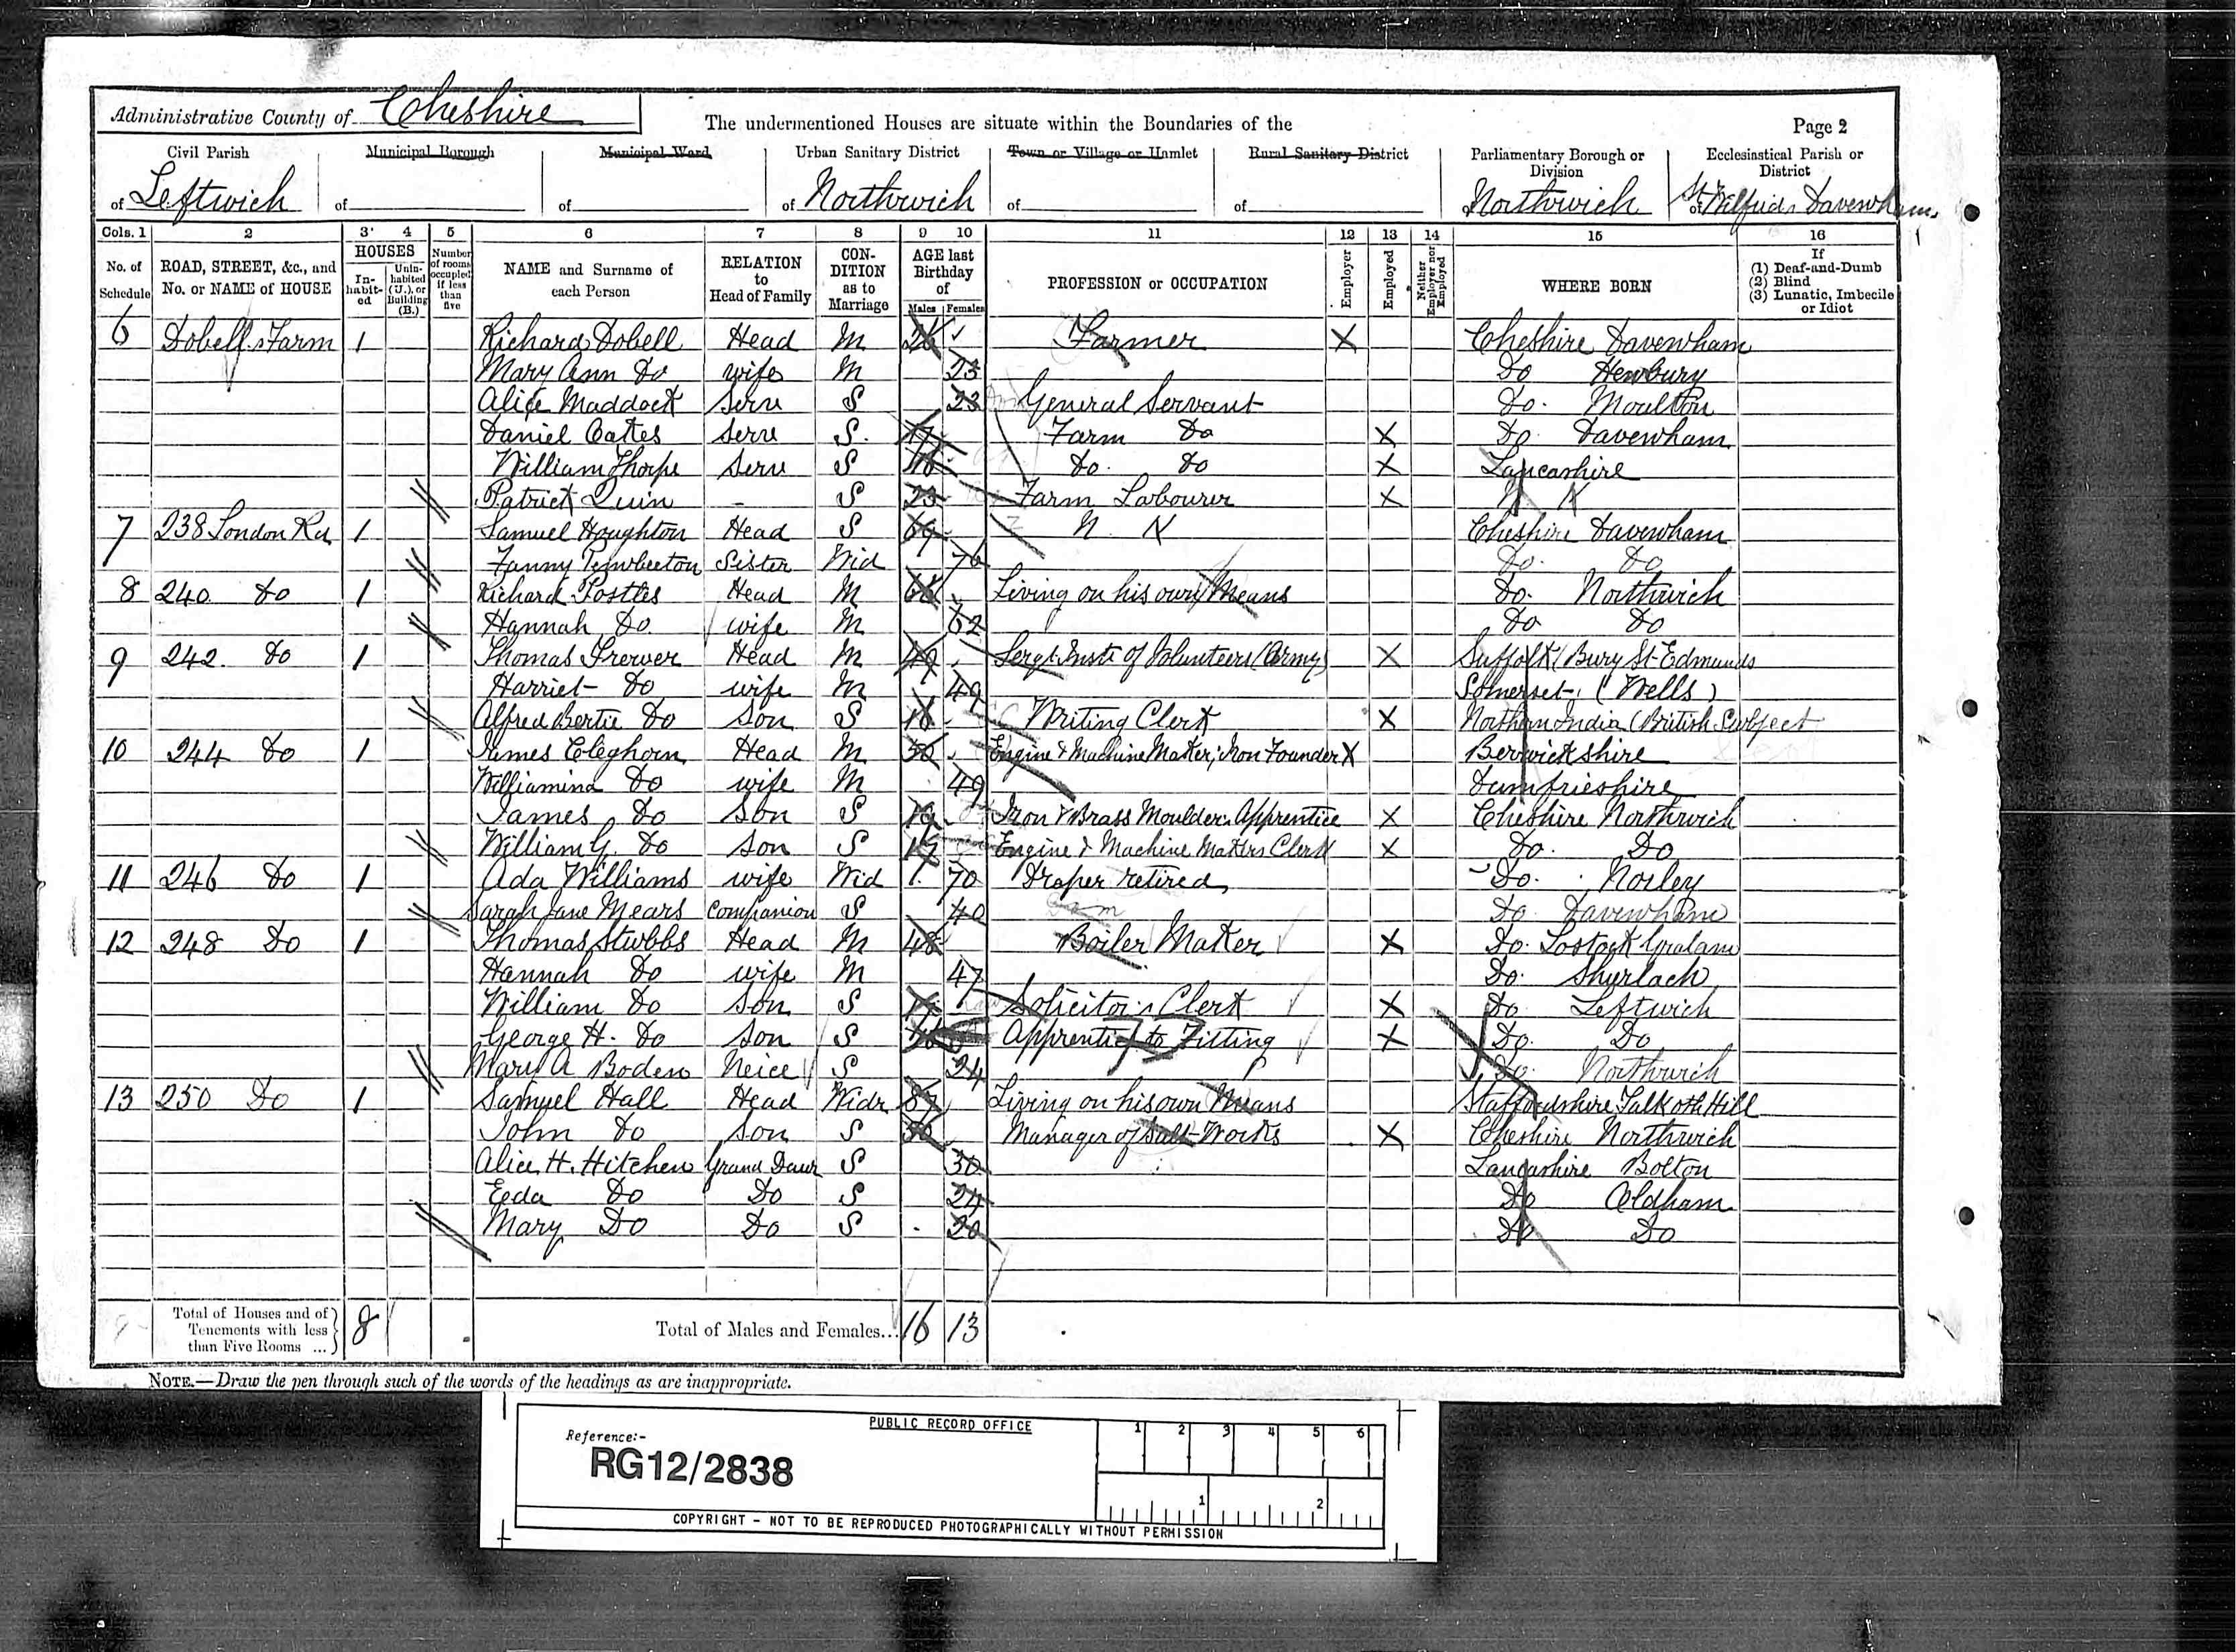 Administrative County of Cheshire
The undermentioned Houses are situate within the Boundaries of the
Page 2
Civil Parish of Leftwich
Municipal Borough of
Municipal Ward of
Urban Sanitary District of Northwich
Town or Village or Hamlet of
Rural Sanitary District of
Parliamentary Borough or Division of Northwich
Ecclesiastical Parish or District of St Wilfrids Davenham
Cols. 1 2 3 4 5 6 7 8 9 10 11 12 13 14 15 16
No. of Schedule
ROAD, STREET, &c., and No. or NAME of HOUSE
HOUSES
Inhabited
Uninhabited (U.), or Building (B.)
Number of rooms occupied if less than five
NAME and Surname of each Person
RELATION to Head of Family
CONDITION as to Marriage
AGE last Birthday of
Males Females
PROFESSION or OCCUPATION
Employer
Employed
Neither Employer nor Employed
WHERE BORN
If
(1) Deaf-and-Dumb
(2) Blind
(3) Lunatic, Imbecile or Idiot
6 Dobells Farm 1 Richard Dobell Head M 26 Farmer X Cheshire Davenham
Mary Ann Do wife M 23 Do Newbury
Alice Maddock Serv S 23 General Servant Do. Moulton
Daniel Oakes Serv S. 17 Farm Do X Do Davenham
William Thorpe Serv S 16 Do. Do X Lancashire
Patrick Quin - S 23 Farm Labourer X N K
7 238 London Rd 1 Samuel Houghton Head S 69 N. K Cheshire Davenham
Fanny Pemberton Sister Wid 76 Do. Do
8 240 Do 1 Richard Postles Head M 68 Living on his own Means Do. Northwich
Hannah Do. wife M 62 Do Do
9 242. Do 1 Thomas Frewer Head M 49 Sergt Instr of Volunteers (Army) X Suffolk (Bury St Edmunds
Harriet Do wife M 49 Somerset (Wells)
Alfred Bertie Do Son S 16 Writing Clerk X Northern India (British Subject
10 244 Do 1 James Cleghorn Head M 50 Engine & Machine Maker; Iron Founder X Berwickshire
Williamina Do wife M 49 Dumfrieshire
James Do Son S 19 Iron & Brass Moulders Apprentice X Cheshire Northwich
William G. Do Son S 17 Engine & Machine Makers Clerk X Do. Do
11 246 Do 1 Ada Williams wife Wid 70 Draper retired Do. Norley
Sarah Jane Mears Companion S 40 Do Davenham
12 248 Do 1 Thomas Stubbs Head M 48 Boiler Maker X Do. Lostock Gralam
Hannah Do wife M 47 Do. Shurlach
William Do Son S Solicitors Clerk X Do Leftwich
George H. Do Son S 16 Apprentice to Fitting X Do. Do
Mary A Boden Neice S 24 Do. Northwich
13 250 Do 1 Samuel Hall Head Widr 87 Living on his own Means Staffordshire Talk oth Hill
John Do Son S 50 Manager of Salt Works X Cheshire Northwich
Alice H. Hitchen Grand Daur S 30 Lancashire Bolton
Do Do S 24 Do Oldham
Mary Do Do S 20 Do Do
Total of Houses and of Tenements with less than Five Rooms ... 8
Total of Males and Females... 16 13
NOTE.—Draw the pen through such of the words of the headings as are inappropriate.
PUBLIC RECORD OFFICE
Reference:-
RG12/2838
1 2 3 4 5 6
1 2
COPYRIGHT - NOT TO BE REPRODUCED PHOTOGRAPHICALLY WITHOUT PERMISSION